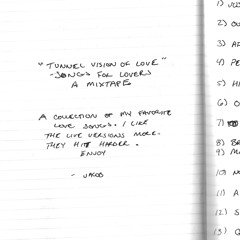 "TUNNEL VISION OF LOVE"
-SONGS FOR LOVERS
A MIXTAPE
A COLLECTION OF MY FAVORITE
LOVE SONGS. I LIKE
THE LIVE VERSIONS MORE.
THEY HIT HARDER.
ENJOY
- JAKOB
1)
2) OU
3) A
4) PE
5) H
6) O
7)
8) B
9) M
10) N
11) A
12) S
13)